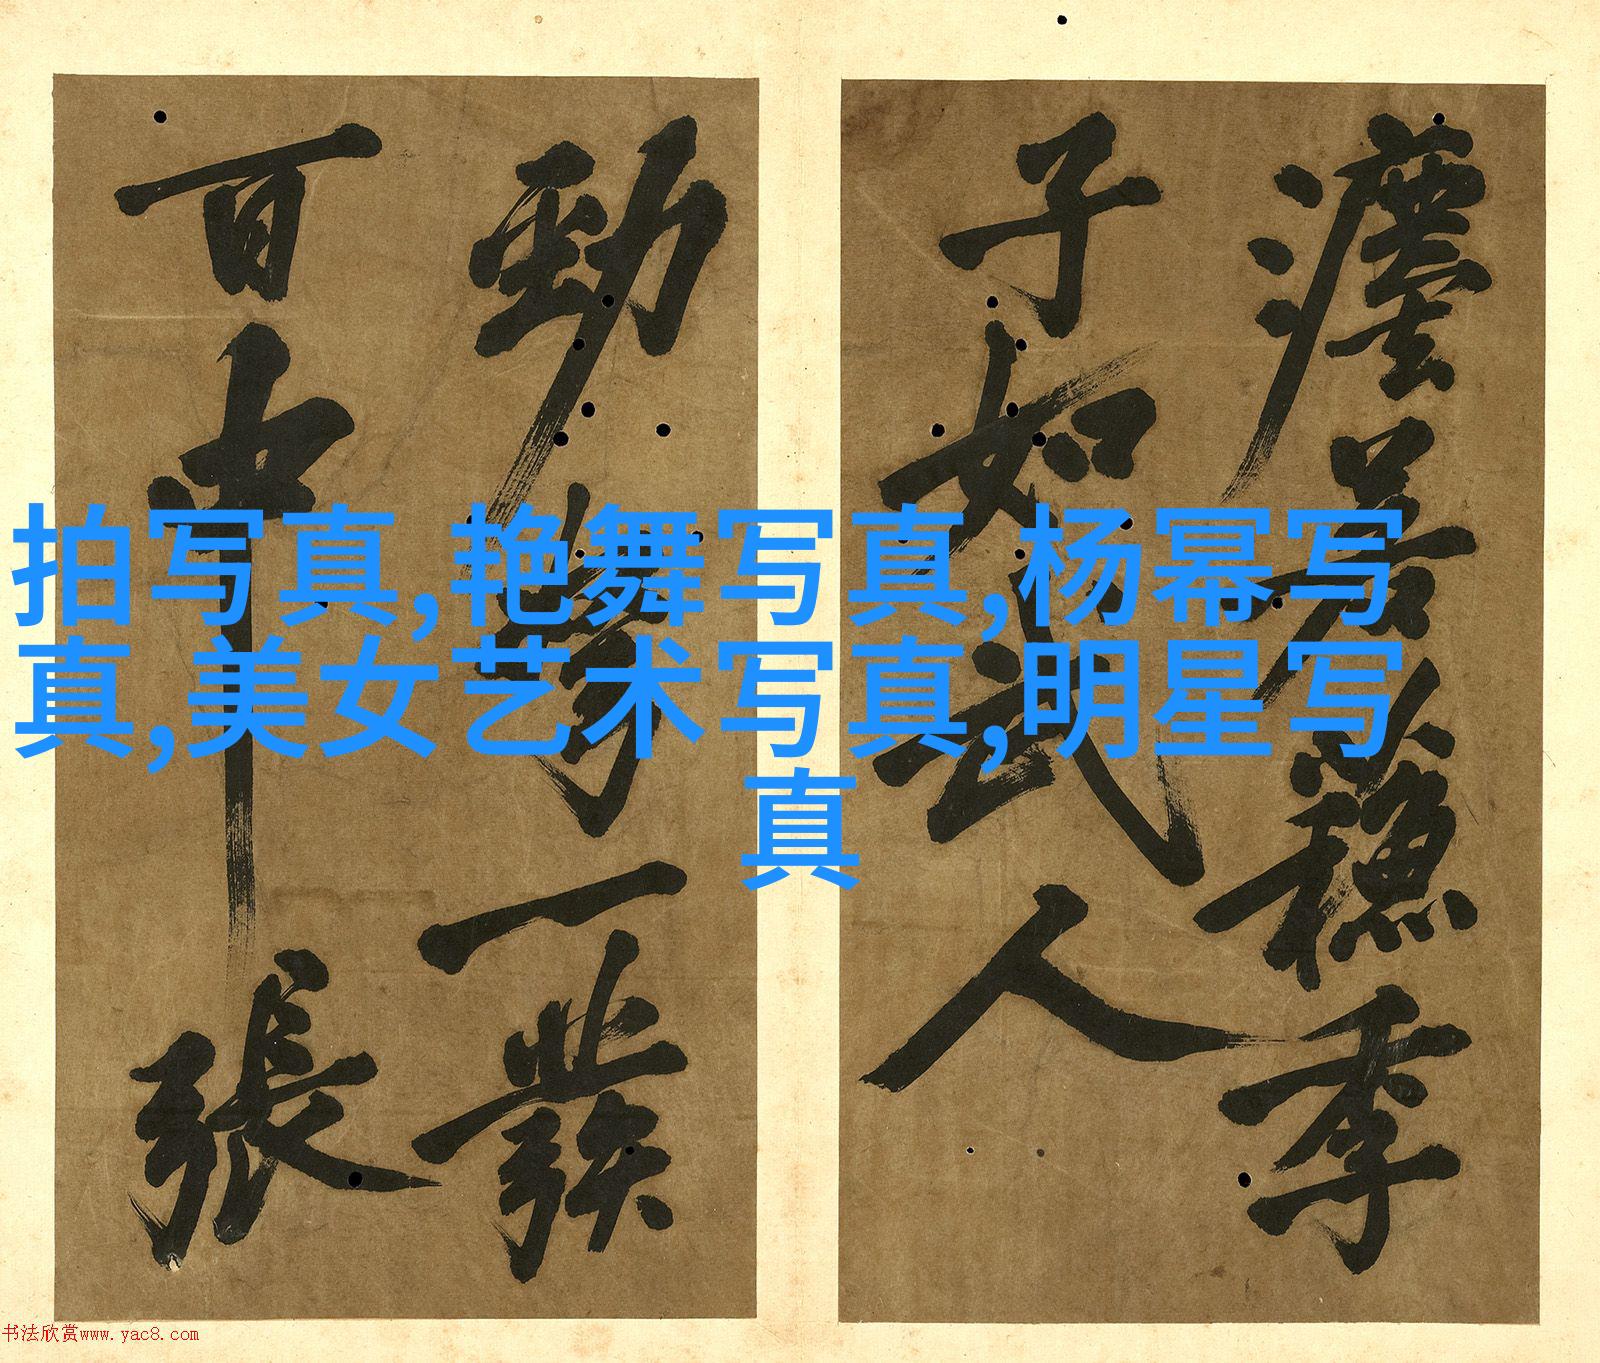 拍写真,艳舞写真,杨幂写
真,美女艺术写真,明星写
真
穩季
子如武人
勁弩一發
百中張
书法欣赏www.yac8.com